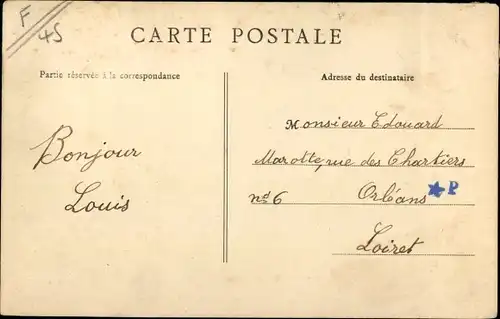 F
45
CARTE POSTALE
Partie réservée à la correspondance
Adresse du destinataire
Bonjour
Louis
Monsieur Edouard
Marotte, rue des Chartiers
nº 6 Orléans
★P
Loiret